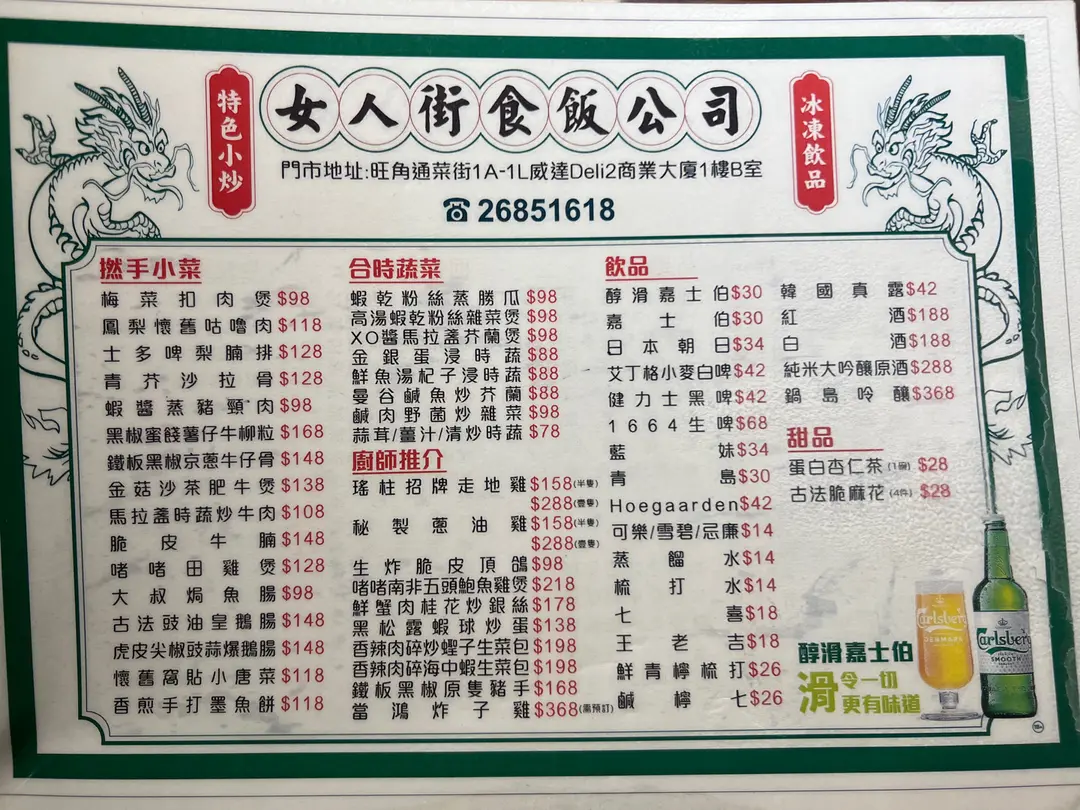 特色小炒
女人街食飯公司
冰凍飲品
門市地址:旺角通菜街1A-1L威達Deli2商業大廈1樓B室
☎26851618
撚手小菜
梅菜扣肉煲$98
鳳梨懷舊咕嚕肉$118
士多啤梨腩排$128
青芥沙拉骨$128
蝦醬蒸豬頸肉$98
黑椒蜜餞薯仔牛柳粒$168
鐵板黑椒京蔥牛仔骨$148
金菇沙茶肥牛煲$138
馬拉盞時蔬炒牛肉$108
脆皮牛腩$148
啫啫田雞煲$128
大叔焗魚腸$98
古法豉油皇鵝腸$148
虎皮尖椒豉蒜爆鵝腸$148
懷舊窩貼小唐菜$118
香煎手打墨魚餅$118
合時蔬菜
蝦乾粉絲蒸勝瓜$98
高湯蝦乾粉絲雜菜煲$98
XO醬馬拉盞芥蘭煲$98
金銀蛋浸時蔬$88
鮮魚湯杞子浸時蔬$88
曼谷鹹魚炒芥蘭$88
鹹肉野菌炒雜菜$98
蒜茸/薑汁/清炒時蔬$78
廚師推介
瑤柱招牌走地雞$158(半隻)
$288(壹隻)
秘製蔥油雞$158(半隻)
$288(壹隻)
生炸脆皮頂鴿$98
啫啫南非五頭鮑魚雞煲$218
鮮蟹肉桂花炒銀絲$178
黑松露蝦球炒蛋$138
香辣肉碎炒蟶子生菜包$198
香辣肉碎海中蝦生菜包$198
鐵板黑椒原隻豬手$168
當鴻炸子雞$368(需預訂)
飲品
醇滑嘉士伯$30
嘉士伯$30
日本朝日$34
艾丁格小麥白啤$42
健力士黑啤$42
1664生啤$68
藍妹$34
青島$30
Hoegaarden$42
可樂/雪碧/忌廉$14
蒸餾水$14
梳打水$14
七喜$18
王老吉$18
鮮青檸梳打$26
鹹檸七$26
韓國真露$42
紅酒$188
白酒$188
純米大吟釀原酒$288
鍋島吟釀$368
甜品
蛋白杏仁茶(1碗)$28
古法脆麻花(4件)$28
醇滑嘉士伯
滑令一切
更有味道
Carlsberg
DENMARK
Carlsberg
SMOOTH
18+